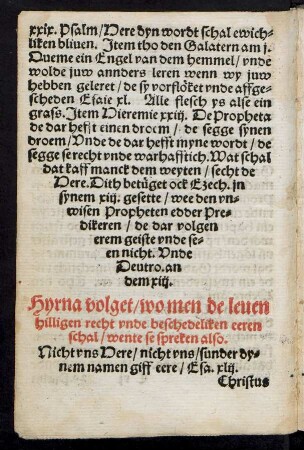 xxix. Psalm/Here dyn wordt schal ewich-
liken bliuen. Item tho den Galatern am j.
Queme ein Engel van dem hemmel/vnde
wolde juw annders leren wenn wy juw
hebben geleret/de sy vorflöket vnde affge-
scheden Esaie xl. Alle flesch ys alse ein
graß. Item Hieremie xxiij. De Propheta
de dar hefft einen droem/de segge synen
droem/Vnde de dar hefft myne wordt/de
segge se recht vnde warhafftich. Wat schal
dat kaff manck dem weyten/secht de
Here. Dith betüget ock Ezech. jn
synem xiij. gesette/wee den vn-
wisen Propheten edder Pre-
dikeren/de dar volgen
erem geiste vnde se-
en nicht. Vnde
Deutro. an
dem xiij.
Hyrna volget/wo men de leuen
hilligen recht vnde beschedeliken eeren
schal/wente se spreken also.
Nicht vns Here/nicht vns/sunder dy-
nem namen giff eere/Esa. xlij.
Christus